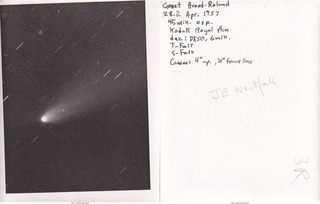 Comet Arend-Roland
28.2 Apr. 1957
45 min. exp.
Kodak Royal Pan
dev: D850, 6 min.
T-Fair
S-Fair
Camera: 4" ap.,
focus line
J E Westfall